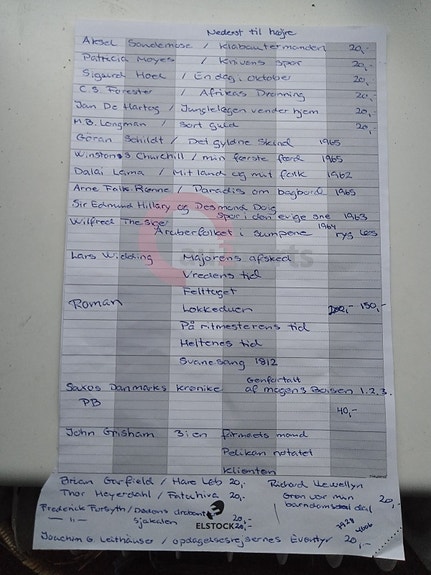 Nederst til højre
Aksel Sandemose / Klabautermanden 20,-
Patricia Moyes / Knivens spor 20,-
Sigurd Hoel / En dag i oktober 20,-
C.S. Forester / Afrikas Dronning 20,-
Jan De Hartog / Junglelægen vender hjem 20,-
H.B. Longman / Sort guld 20,-
Göran Schildt / Det gyldne Skind 1965
Winston S Churchill / min første færd 1965
Dalai Lama / Mit land og mit folk 1962
Arne Falk-Rønne / Paradis om bagbord 1965
Sir Edmund Hillary og Desmond Doig
Spor i den evige sne 1963
Wilfred Thesiger 1964
Araberfolket i sumpene ryg løs
Lars Widding Majorens afsked
Vredens tid
Felttoget
Roman Lokkeduen 200,- 150,-
På ritmesterens tid
Heltenes tid
Svanesang 1812
Genfortalt
Saxos Danmarks krønike af mogens Boisen 1.2.3.
PB 40,-
John Grisham 3 i en firmaets mand
Pelikan notatet
Klienten
Brian Garfield / Hare Løb 20,- Richard Llewellyn
Thor Heyerdahl / Fatuhiva 20,- Grøn var min 20,-
barndoms dal
Frederick Forsyth / 20,-
-"- sjakalen 20,-
ELSTOCK
Joachim G. Leithäuser / opdagelsesrejsernes Eventyr 20,-